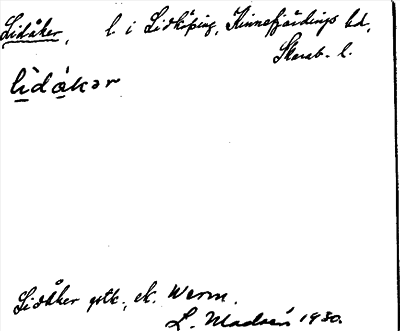 Lidåker, l. i Lidköping, Kinnefjärdings hd,
Skarab. l.
lìdákər
Lidåker gtk., ek. Werm.
L. Madsén 1930.